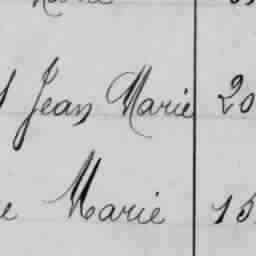 Jean Marie 20
Marie 15